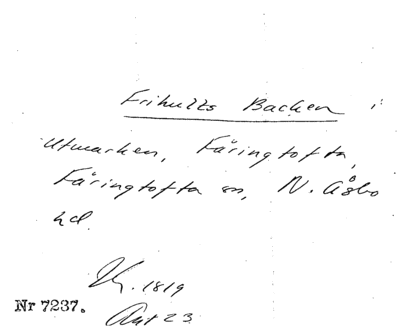 Frihults Backen i
Utmarken, Färingtofta,
Färingtofta sn, N. Åsbo
hd.
1819
Akt 23
Nr 7237.